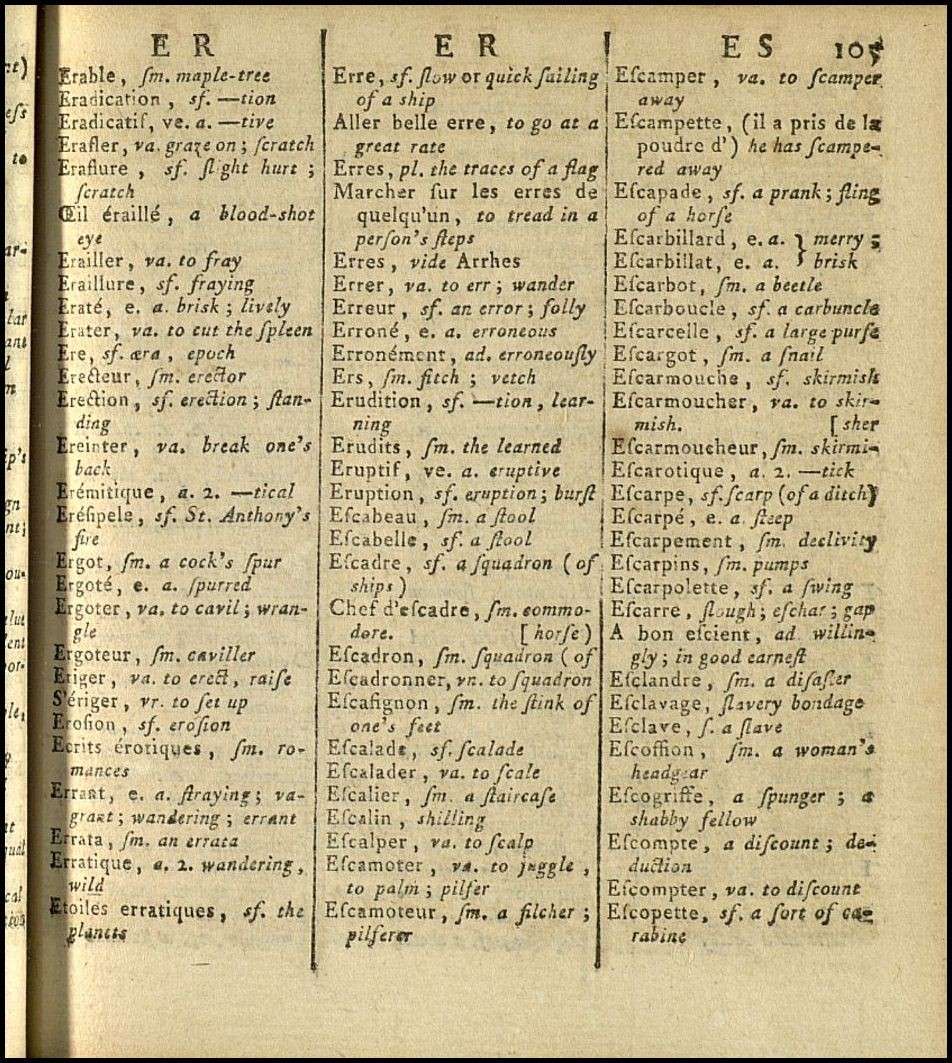 E R
Erable, ſm. maple-tree
Eradication, sf. —tion
Eradicatif, ve. a. —tive
Erafler, va. graze on; ſcratch
Eraflure, sf. ſlight hurt;
ſcratch
Œil éraillé, a blood-shot
eye
Erailler, va. to fray
Eraillure, sf. fraying
Eraté, e. a. brisk; lively
Erater, va. to cut the ſpleen
Ere, sf. æra, epoch
Erecteur, ſm. erector
Erection, sf. erection; ſtan-
ding
Ereinter, va. break one's
back
Erémitique, a. 2. —tical
Eréſipele, sf. St. Anthony's
fire
Ergot, ſm. a cock's ſpur
Ergoté, e. a. ſpurred
Ergoter, va. to cavil; wran-
gle
Ergoteur, ſm. caviller
Eriger, va. to erect, raiſe
S'ériger, vr. to ſet up
Eroſion, sf. eroſion
Ecrits érotiques, ſm. ro-
mances
Errant, e. a. ſtraying; va-
grant; wandering; errant
Errata, ſm. an errata
Erratique, a. 2. wandering,
wild
Etoiles erratiques, sf. the
planets
E R
Erre, sf. ſlow or quick ſailing
of a ship
Aller belle erre, to go at a
great rate
Erres, pl. the traces of a ſtag
Marcher ſur les erres de
quelqu'un, to tread in a
perſon's ſteps
Erres, vide Arrhes
Errer, va. to err; wander
Erreur, sf. an error; folly
Erroné, e. a. erroneous
Erronément, ad. erroneouſly
Ers, ſm. fitch; vetch
Erudition, sf. —tion, lear-
ning
Erudits, ſm. the learned
Eruptif, ve. a. eruptive
Eruption, sf. eruption; burſt
Eſcabeau, ſm. a ſtool
Eſcabelle, sf. a ſtool
Eſcadre, sf. a ſquadron (of
ships)
Chef d'eſcadre, ſm. commo-
dore. [horſe)
Eſcadron, ſm. ſquadron (of
Eſcadronner, vn. to ſquadron
Eſcafignon, ſm. the ſtink of
one's feet
Eſcalade, sf. ſcalade
Eſcalader, va. to ſcale
Eſcalier, ſm. a ſtaircaſe
Eſcalin, shilling
Eſcalper, va. to ſcalp
Eſcamoter, va. to juggle,
to palm; pilfer
Eſcamoteur, ſm. a filcher;
pilferer
E S 105
Eſcamper, va. to ſcamper
away
Eſcampette, (il a pris de la
poudre d') he has ſcampe-
red away
Eſcapade, sf. a prank; fling
of a horſe
Eſcarbillard, e. a. } merry;
Eſcarbillat, e. a. } brisk
Eſcarbot, ſm. a beetle
Eſcarboucle, sf. a carbuncle
Eſcarcelle, sf. a large purſe
Eſcargot, ſm. a ſnail
Eſcarmouche, sf. skirmish
Eſcarmoucher, va. to skir-
mish. [sher
Eſcarmoucheur, ſm. skirmi-
Eſcarotique, a. 2. —tick
Eſcarpe, sf. ſcarp (of a ditch)
Eſcarpé, e. a. ſteep
Eſcarpement, ſm. declivity
Eſcarpins, ſm. pumps
Eſcarpolette, sf. a ſwing
Eſcarre, ſlough; eſchar; gap
A bon eſcient, ad. willin-
gly; in good earneſt
Eſclandre, ſm. a diſaſter
Eſclavage, ſlavery bondage
Eſclave, ſ. a ſlave
Eſcoffion, ſm. a woman's
headgear
Eſcogriffe, a ſpunger; a
shabby fellow
Eſcompte, a diſcount; de-
duction
Eſcompter, va. to diſcount
Eſcopette, sf. a ſort of ca-
rabine